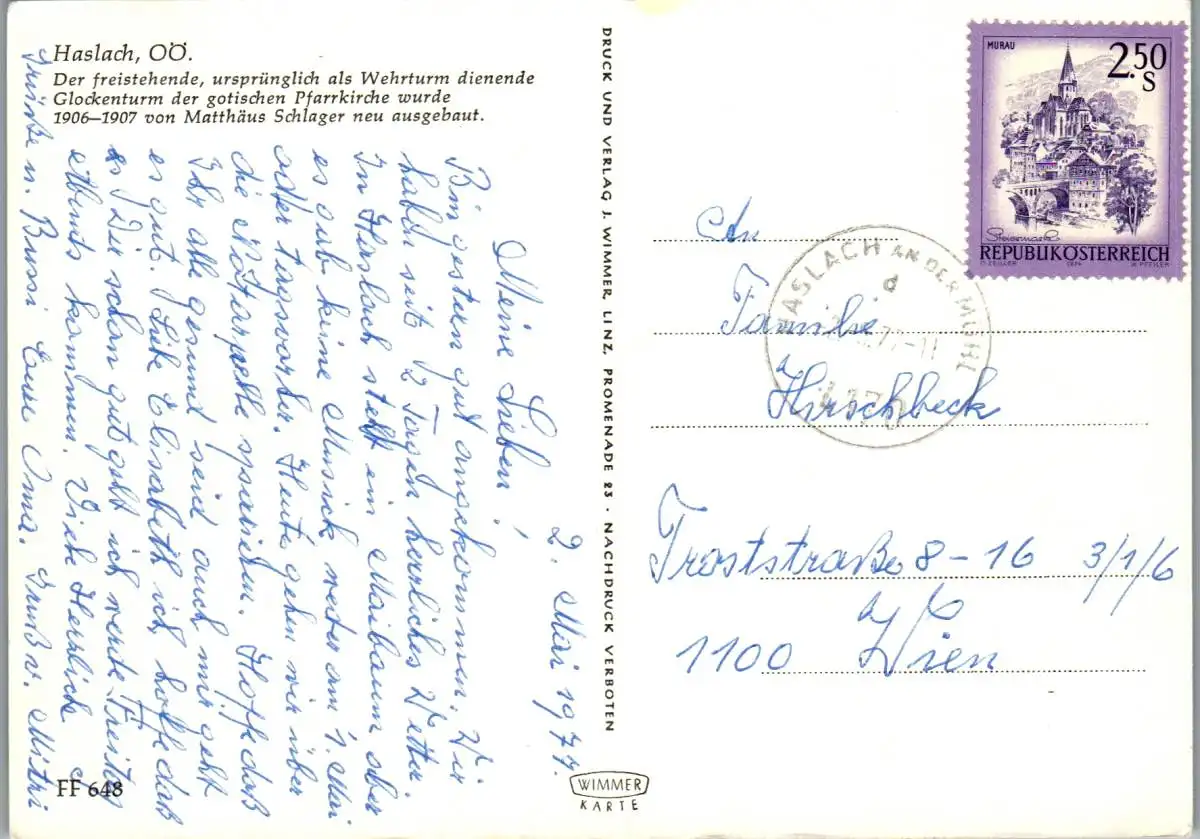 Haslach, OÖ.
Der freistehende, ursprünglich als Wehrturm dienende
Glockenturm der gotischen Pfarrkirche wurde
1906–1907 von Matthäus Schlager neu ausgebaut.
2. Mai 1977.
Meine Lieben!
Bin gestern gut angekommen. Wir
habn seit 2 Tagen herrliches Wetter.
In Haslach steht ein Maibaum aber
es gab keine Musick weder am 1. Mai
oder tagsvorher. Heute gehen wir über
die spazieren. Hoffe daß
Ihr alle gesund seid auch mir geht
es gut. Liebe Elisabeth ich hoffe daß
es Dir schon gut geht ich werde Freitag
kommen. Viele Herzliche
Grüße u. Bussi Eure Oma. Gruß v. Mitzi
FF 648
DRUCK UND VERLAG J. WIMMER, LINZ, PROMENADE 23 · NACHDRUCK VERBOTEN
WIMMER
KARTE
MURAU
2.50
S
Steiermark
REPUBLIK ÖSTERREICH
O. ZEILLER 1974 W. PFEILER
HASLACH AN DER MÜHL
d
77-11
4170
An
Familie
Hirschbeck
Troststraße 8-16 3/1/6
1100 Wien